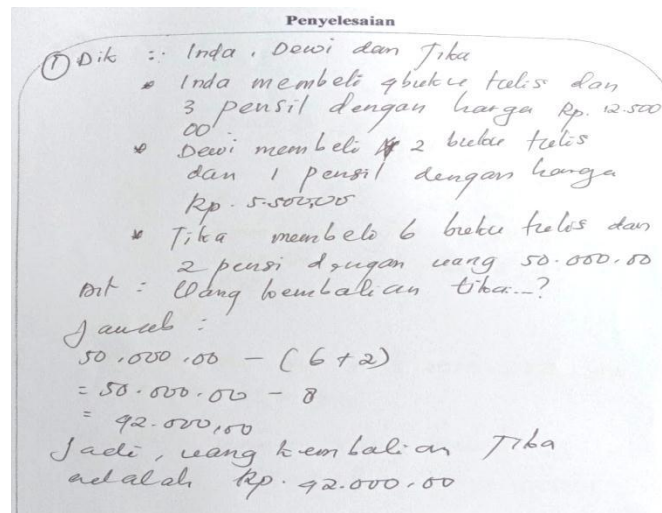 Penyelesaian
① Dik : Inda, Dewi dan Tika
* Inda membeli 4 buku tulis dan
3 pensil dengan harga Rp. 12.500
00
* Dewi membeli 2 buku tulis
dan 1 pensil dengan harga
Rp. 5.500,00
* Tika membeli 6 buku tulis dan
2 pensi dengan uang 50.000.00
Dit : Uang kembalian tika...?
Jawab :
50.000.00 - (6+2)
= 50.000.00 - 8
= 42.000,00
Jadi, uang kembalian Tika
adalah Rp. 42.000.00